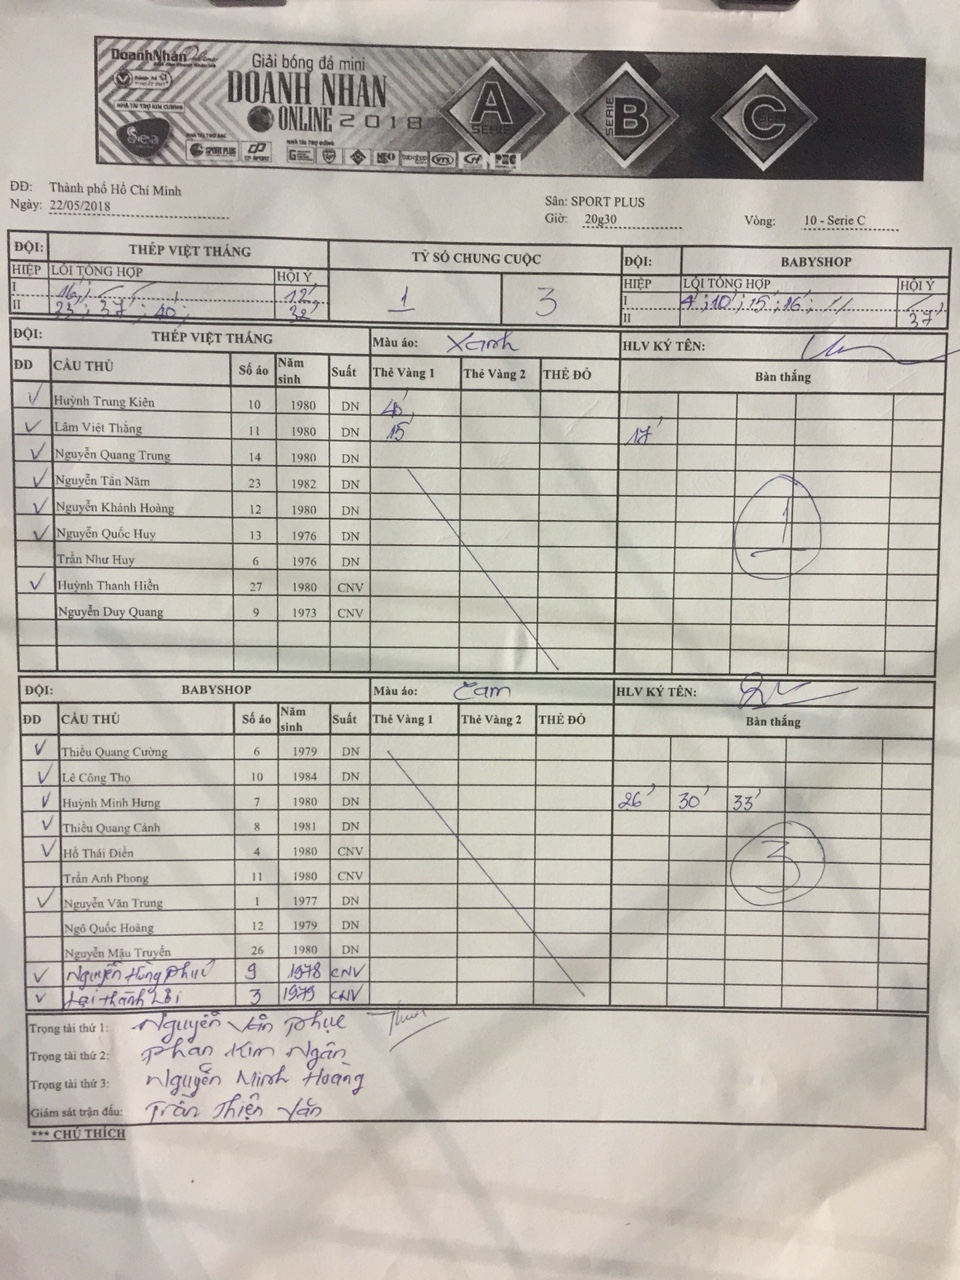 DoanhNhân Online
Giải bóng đá mini
DOANH NHÂN
ONLINE 2018
A
SERIE
SERIE
B
C
NHÀ TÀI TRỢ KIM CƯƠNG
NHÀ TÀI TRỢ BẠC
NHÀ TÀI TRỢ ĐỒNG
Sea
SPORT PLUS
ĐĐ: Thành phố Hồ Chí Minh
Ngày: 22/05/2018
Sân: SPORT PLUS
Giờ: 20g30
Vòng: 10 - Serie C
ĐỘI: THÉP VIỆT THẮNG TỶ SỐ CHUNG CUỘC ĐỘI: BABYSHOP
HIỆP LỖI TỔNG HỢP HỘI Ý 1 3 HIỆP LỖI TỔNG HỢP HỘI Ý
I 16' 12' I 4'; 10'; 15'; 16';
II 23'; 37'; 40'; 32' II 37'
ĐỘI: THÉP VIỆT THẮNG Màu áo: Xanh HLV KÝ TÊN:
ĐD CẦU THỦ Số áo Năm sinh Suất Thẻ Vàng 1 Thẻ Vàng 2 THẺ ĐỎ Bàn thắng
Huỳnh Trung Kiên 10 1980 DN
Lâm Việt Thắng 11 1980 DN 15' 17'
Nguyễn Quang Trung 14 1980 DN
Nguyễn Tấn Năm 23 1982 DN
Nguyễn Khánh Hoàng 12 1980 DN
Nguyễn Quốc Huy 13 1976 DN
1
Trần Như Huy 6 1976 DN
Huỳnh Thanh Hiền 27 1980 CNV
Nguyễn Duy Quang 9 1973 CNV
ĐỘI: BABYSHOP Màu áo: Cam HLV KÝ TÊN:
ĐD CẦU THỦ Số áo Năm sinh Suất Thẻ Vàng 1 Thẻ Vàng 2 THẺ ĐỎ Bàn thắng
Thiều Quang Cường 6 1979 DN
Lê Công Thọ 10 1984 DN
Huỳnh Minh Hưng 7 1980 DN 26' 30' 33'
Thiều Quang Cánh 8 1981 DN
Hồ Thái Điền 4 1980 CNV
3
Trần Anh Phong 11 1980 CNV
Nguyễn Văn Trung 1 1977 DN
Ngô Quốc Hoàng 12 1979 DN
Nguyễn Mậu Truyền 26 1980 DN
Nguyễn Hồng Phúc 9 1978 CNV
Lại Thành Lợi 3 1979 CNV
Trọng tài thứ 1: Nguyễn Văn Phục
Trọng tài thứ 2: Phan Kim Ngân
Trọng tài thứ 3: Nguyễn Minh Hoàng
Giám sát trận đấu: Trần Thiện Văn
*** CHÚ THÍCH